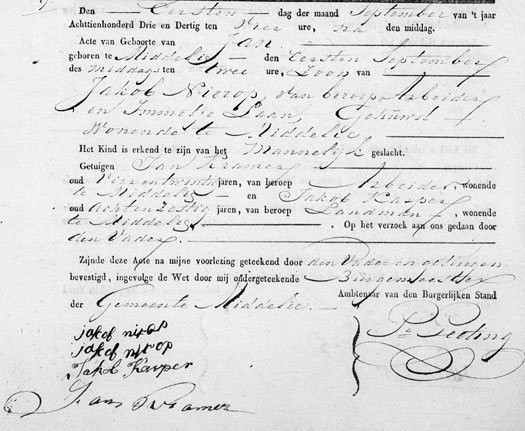 Den Eersten dag der maand September van 't jaar
Achttienhonderd Drie en Dertig ten Vier ure, na den middag.
Acte van Geboorte van Jan
geboren te Middelie den Eersten September
des middags ten twee ure, Zoon van
Jakob Nierop, van beroep Arbeider
en Immetie Laan, Gehuwd
Wonende te Middelie,
Het Kind is erkend te zijn van het Mannelijk geslacht.
Getuigen Jan Kramer
oud Vier en twintig jaren, van beroep Arbeider, wonende
te Middelie en Jakob Kasper
oud Achtenzestig jaren, van beroep Landman, wonende
te Middelie. Op het verzoek aan ons gedaan door
den Vader
Zijnde deze Acte na mijne voorlezing geteekend door den Vader en getuigen
bevestigd, ingevolge de Wet door mij ondergeteekende Burgemeester
Ambtenaar van den Burgerlijken Stand
der Gemeente Middelie.
jakof nirop
jakof nirop
Jakob Kasper
Jan Kramer